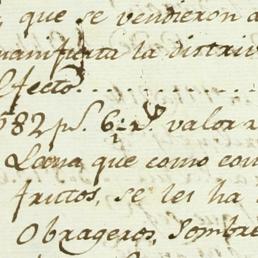 , que se vendieron a
manifiesta la distriv
efecto..........
582 ps. 6½ rs. valor
Lana que como con
fructos, se les ha
Obrageros, Sombre